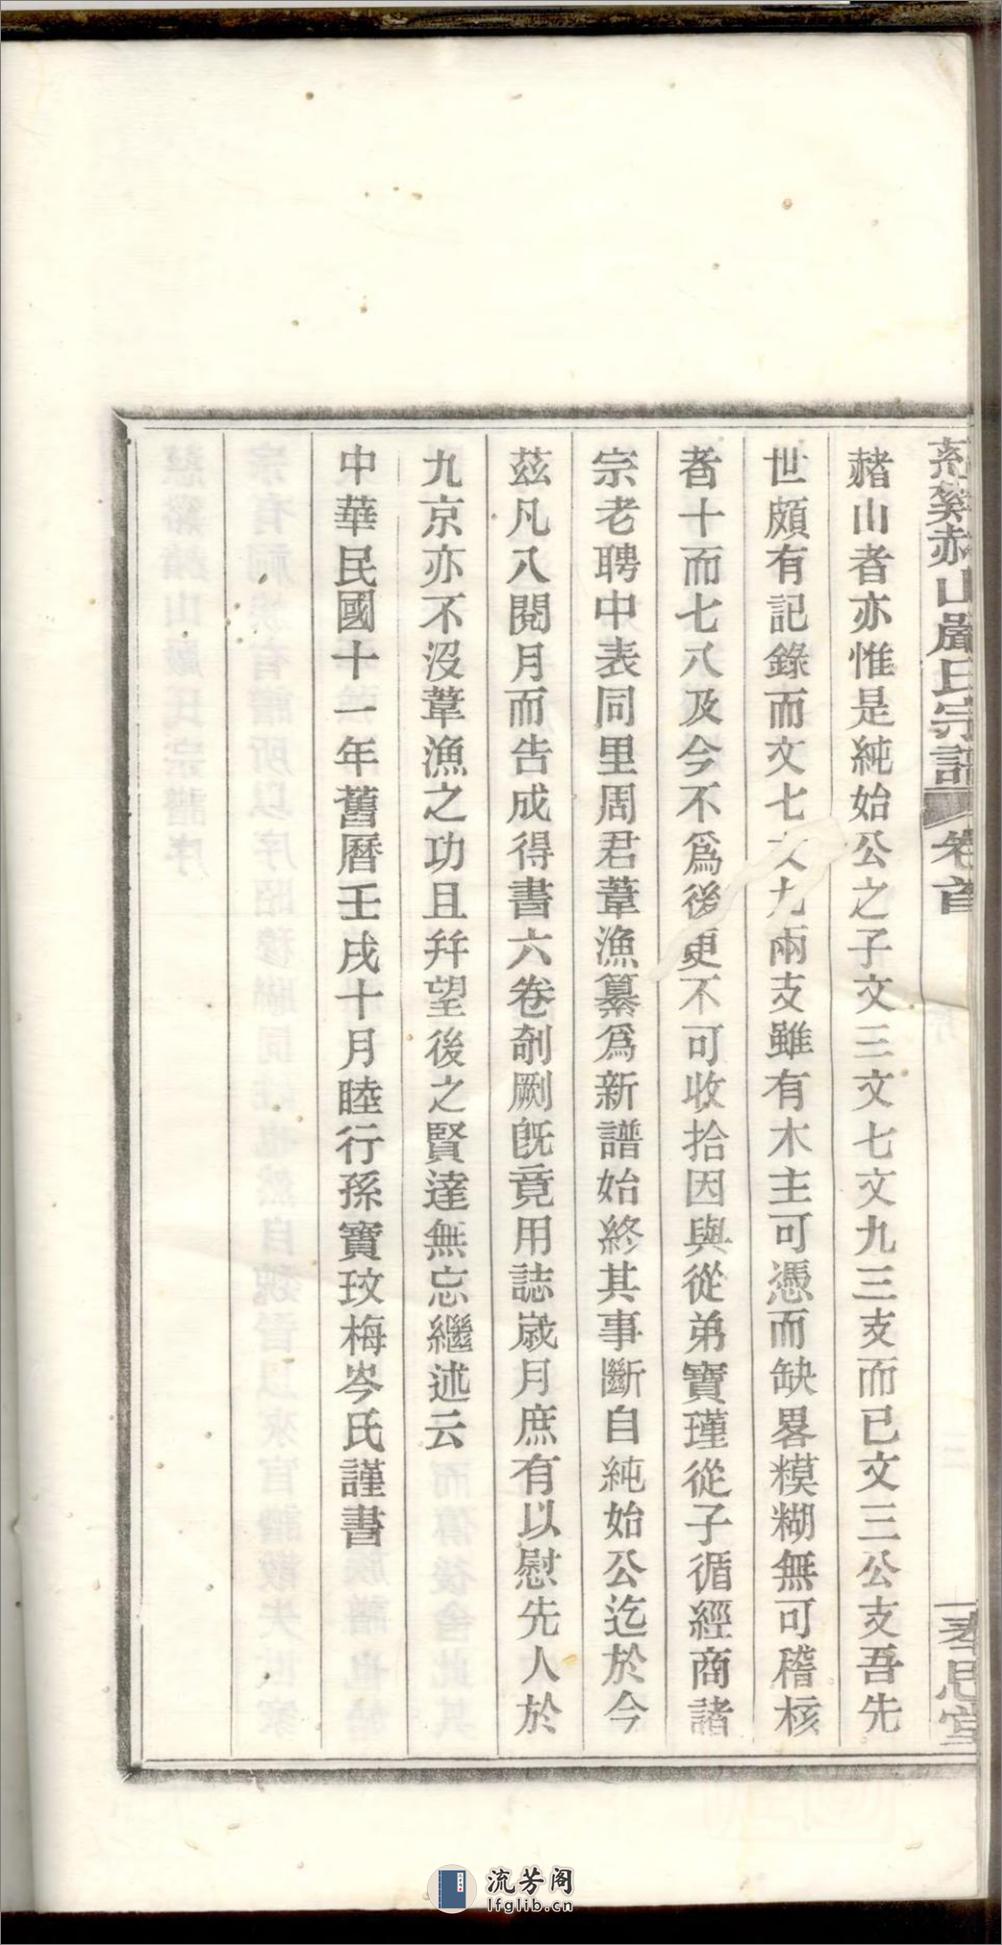 赭山者亦惟是純始公之子文三文七文九三支而已文三公支吾先
世頗有記錄而文七文九兩支雖有木主可憑而缺畧糢糊無可稽核
者十而七八及今不爲後更不可收拾因與從弟寶瑾從子循經商諸
宗老聘中表同里周君葦漁纂爲新譜始終其事斷自純始公迄於今
茲凡八閱月而告成得書六卷剞劂旣竟用誌歲月庶有以慰先人於
九京亦不沒葦漁之功且幷望後之賢達無忘繼述云
中華民國十一年舊曆壬戌十月睦行孫寶玟梅岑氏謹書
山嚴氏宗譜 卷首
流芳阁
lfglib.cn